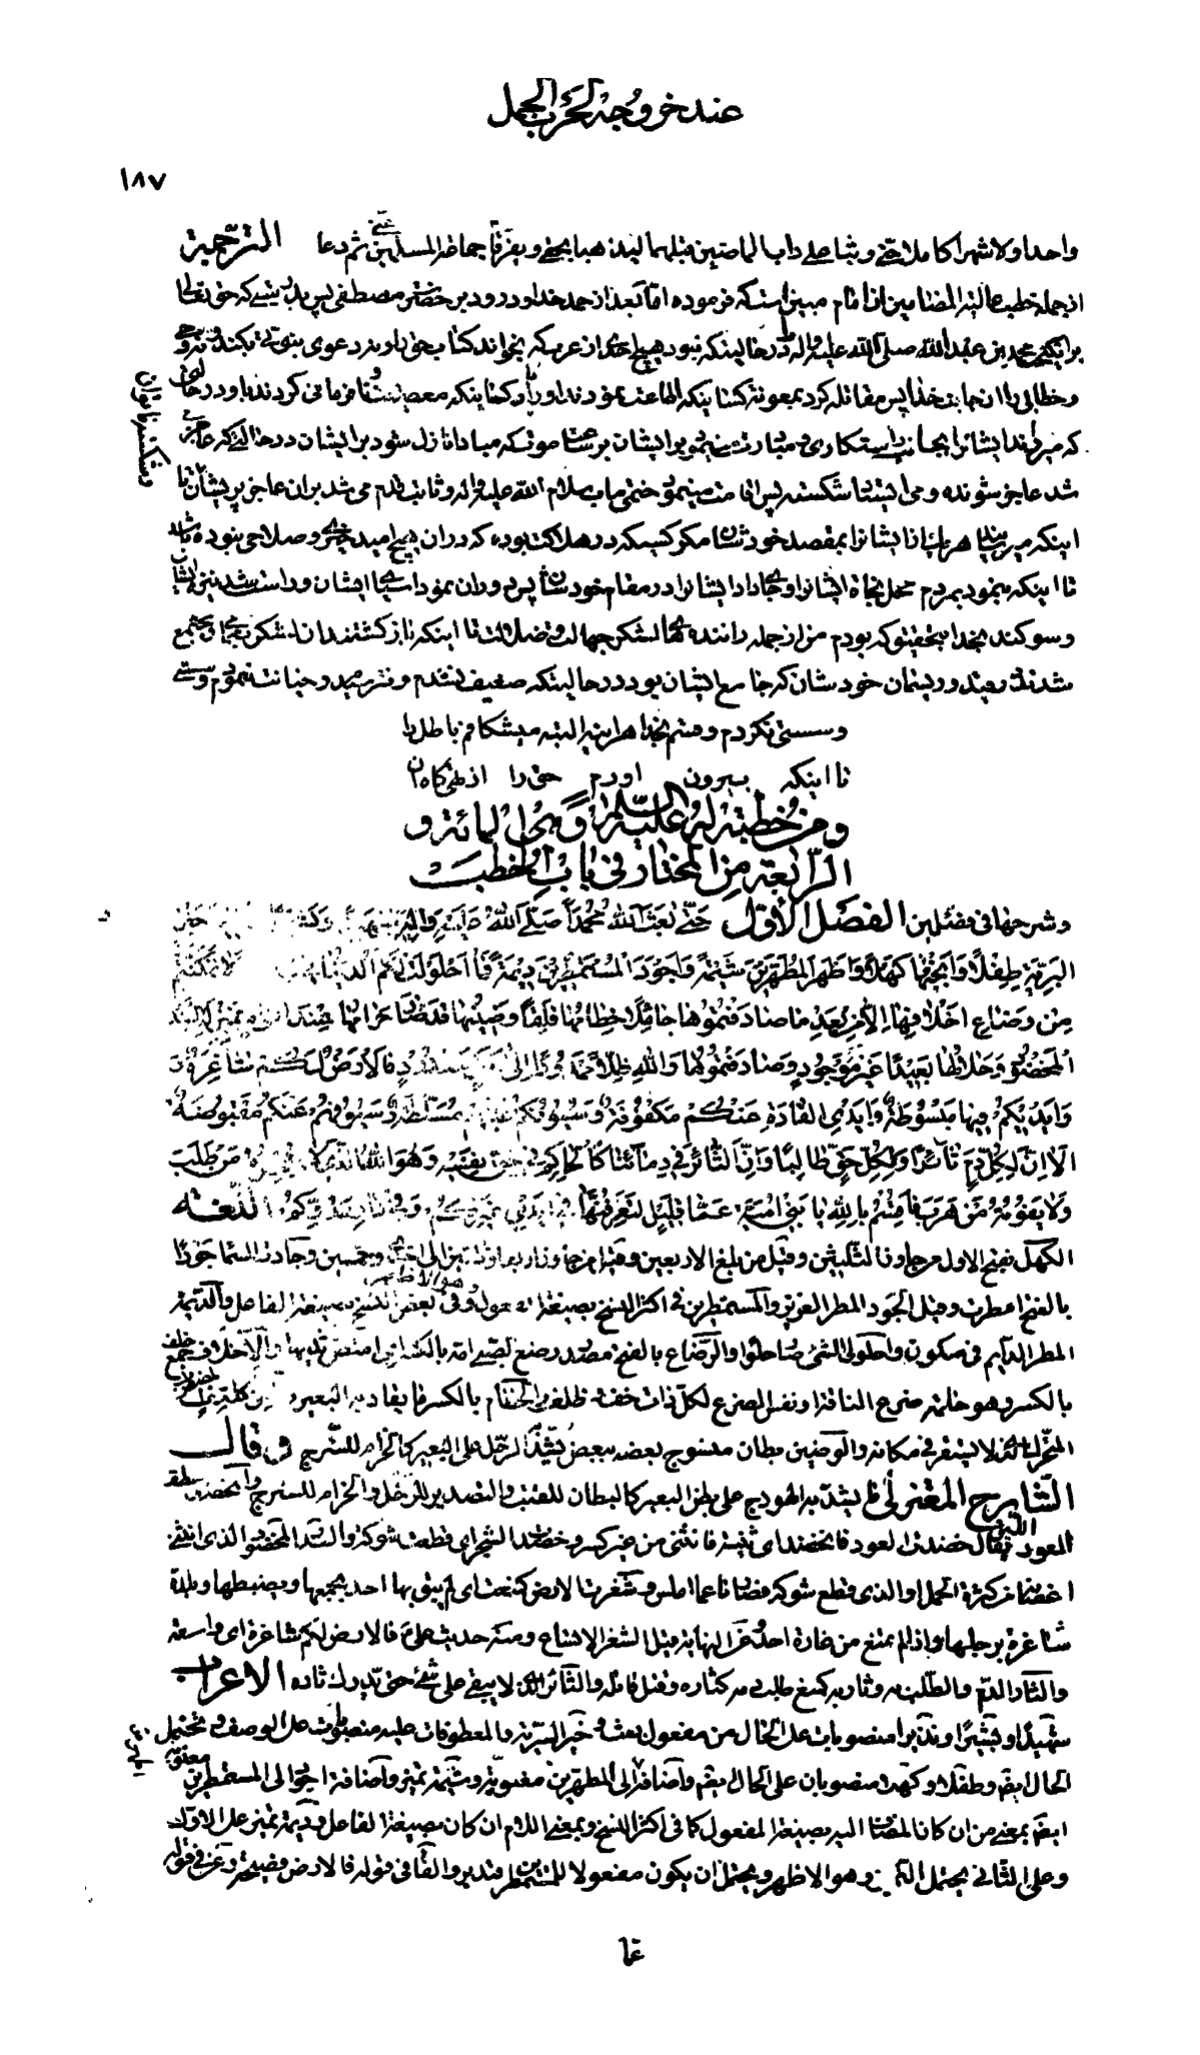 عند خروجه لحرب الجمل
١٨٧
واحدا ولا شهرا كاملا حتى وثبا على داب الماضين قبلهما ليذهبا بحقى ويفرقا جماعة المسلمين عنى ثم دعا الترجمة
از جمله خطب عاليه المضامين ان امام مبين است كه فرموده اما بعد از حمد خدا ودرود بر حضرت مصطفى پس بدرستى كه حق تعالى
برانگيخت محمد بن عبد الله صلى الله عليه واله را در حالتيكه نبود هيچ احدى از عرب كه بخواند كتاب حق را ونه دعوى نبوتى بكند ونه وحى
وخطابى را از جانب خدا پس مقاتله كرد بمعونة كسانيكه اطاعت نمودند او را با كسانيكه معصيت ونافرمانى كردند باو در حالتى
كه ميراند ايشانرا بجانب رستكارى ومبادرت مينمود برايشان
شد عاجز شونده ومى ايستاد شكسته پس اقامت مينمود ختمى ماب سلام الله عليه واله وثابت قدم مى شد بر ان عاجز پريشان تا
اينكه ميرسانيد هر يك از ايشانرا بمقصد خودشان مگر كسيكه در هلاكت بوده كه در ان هيچ اميد خيرى وصلاحى نبوده باشد
تا اينكه بنمود بمردم محل نجاة ايشانرا وجا داد ايشانرا در مقام خودشان پس دوران نمود اسياى ايشان وراست شد نيزه ايشان
وسوگند بخدا بتحقيق كه بودم من از جمله راننده هاى لشكر جهالت وضلالت تا اينكه باز گشتند ان لشكر بتمامى ومجتمع
شدند در قيد وريسمان خودشان كه جامع ايشان بود در حالتيكه ضعيف نشدم ونترسيدم وخيانت ننمودم وسستى
وسستى نكردم وقسم بخدا هراينه البته ميشكافم باطل را
تا اينكه بيرون اورم حق را از تهيگاه ان
ومن خطبة له عليه السلام وهى المائة و
الرابعة من المختار فى باب الخطب
وشرحها فى فصلين الفصل الأول حتى بعث الله محمدا صلى الله عليه واله شهيدا
البرية طفلا وانجبها كهلا واطهر المطهرين شيمة واجود المستمطرين ديمة فما احلولت لكم الدنيا
من رضاع اخلافها الا من بعد ما صادفتموها جائلا خطامها قلقا وضينها قد صار حرامها عند اقوام بمنزلة السدر
المخضود وحلالها بعيدا غير موجود وصادفتموها والله ظلا ممدودا الى اجل معدود فالارض لكم شاغرة
وايديكم فيها مبسوطة وايدى القادة عنكم مكفوفة وسيوفكم عليهم مسلطة وسيوفهم عنكم مقبوضة
الا ان لكل دم ثائرا ولكل حق طالبا وان الثائر فى دمائنا كالحاكم فى حق نفسه وهو الله الذى لا يعجزه من طلب
ولا يفوته من هرب فاقسم بالله يا بنى امية عما قليل لتعرفنها فى ايدى غيركم وفى دار عدوكم اللغة
الكهل بفتح الاول من جاوز الثلثين وقيل من بلغ الاربعين وقيل من جاوز اربعا وثلثين الى احدى وخمسين وجادت السماء جودا
بالفتح امطرت وقيل الجود المطر الغزير والمستمطرين فى اكثر النسخ بصيغة المفعول وفى بعض النسخ بصيغة الفاعل والديمة
هو الاظهر
المطر الدايم فى سكون واحلولى الشىء صار حلوا والرضاع بالفتح مصدر رضع الصبى امه بالكسر اى امتص ثديها والاخلاف جمع خلف
بالكسر وهو حلمة ضرع الناقة او نفس الضرع لكل ذات خف وظلف والخطام بالكسر ما يقاد به البعير
المتحرك الذى لا يستقر فى مكانه والوضين بطان منسوج بعضه ببعض يشد به الرحل على البعير كالحزام للسرج وقال
الشارح المعتزلى يشد به الهودج على بطن البعير كالبطان للقتب والتصدير للرحل والحزام للسرج والخضد
العود اللين يقال خضدت العود فانخضد اى ثنيته فانثنى من غير كسر وخضدت الشجر اى قطعت شوكه والسدر المخضود الذى انثنى
اغصانه من كثرة الحمل او الذى قطع شوكه فصار ناعما املس وشغرت الارض كمنعت اى لم يبق بها احد يحميها ويضبطها وبلدة
شاغرة برجلها اذا لم تمتنع من غارة احد وعن النهاية قيل الشغر الاتساع ومنه حديث على فالارض لكم شاغرة اى واسعة
والثار الدم والطلب به وثار به كمنع طلب دمه كثاره وقتل قاتله والثائر الذى لا يبقى على شىء حتى يدرك ثاره الاعراب
شهيدا وبشيرا ونذيرا منصوبات على الحال من مفعول بعث وخير البرية والمعطوفات عليه منصوبات على الوصف ويحتمل
الحال ايضا وطفلا وكهلا منصوبان على الحال ايضا واضافة اطهر الى المطهرين معنوية وشيمة تميز واضافة اجود الى المستمطرين
ايضا بمعنى من ان كان المضاف اليه بصيغة المفعول كما فى اكثر النسخ وبمعنى اللام ان كان بصيغة الفاعل وديمة تميز على الاول
وعلى الثانى يحتمل وهو الاظهر ويحتمل ان يكون مفعولا للمستمطرين فتدبر والفا فى قوله فالارض فصيحة وعن فى قوله
عما